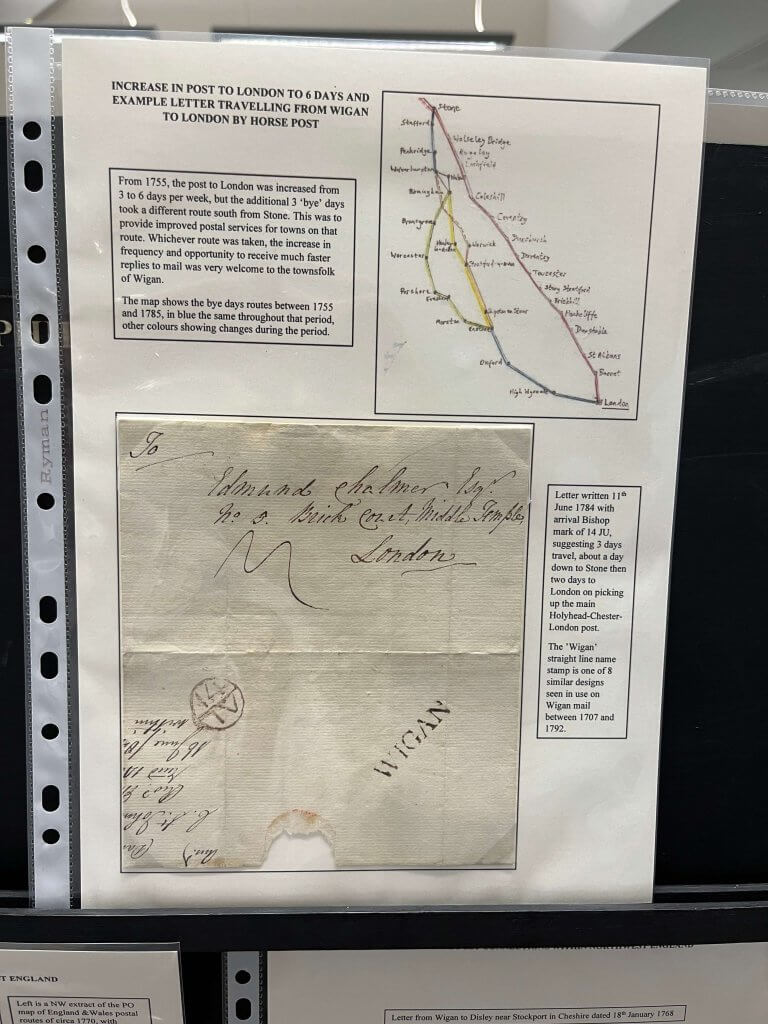 INCREASE IN POST TO LONDON TO 6 DAYS AND
EXAMPLE LETTER TRAVELLING FROM WIGAN
TO LONDON BY HORSE POST
From 1755, the post to London was increased from
3 to 6 days per week, but the additional 3 ‘bye’ days
took a different route south from Stone. This was to
provide improved postal services for towns on that
route. Whichever route was taken, the increase in
frequency and opportunity to receive much faster
replies to mail was very welcome to the townsfolk
of Wigan.
The map shows the bye days routes between 1755
and 1785, in blue the same throughout that period,
other colours showing changes during the period.
Stone
Stafford
Wolseley Bridge
Penkridge
Rugeley
Lichfield
Coleshill
Coventry
Bromsgrove
Dunchurch
Warwick
Worcester
Daventry
Towcester
Stony Stratford
Pershore
Brickhill
Hockliffe
Moreton
Dunstable
St Albans
Oxford
Barnet
High Wycombe
London
To
Edmund Chalmer Esqr.
No 5. Brick Court, Middle Temple
London
WIGAN
Letter written 11th
June 1784 with
arrival Bishop
mark of 14 JU,
suggesting 3 days
travel, about a day
down to Stone then
two days to
London on picking
up the main
Holyhead-Chester-
London post.
The ‘Wigan’
straight line name
stamp is one of 8
similar designs
seen in use on
Wigan mail
between 1707 and
1792.
Ryman
T ENGLAND
Left is a NW extract of the PO
map of England & Wales postal
routes of circa 1770, with
Letter from Wigan to Disley near Stockport in Cheshire dated 18th January 1768